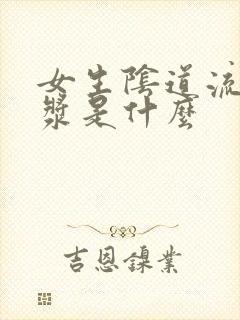 女生陰道流
漿是什麼
吉恩鎳業